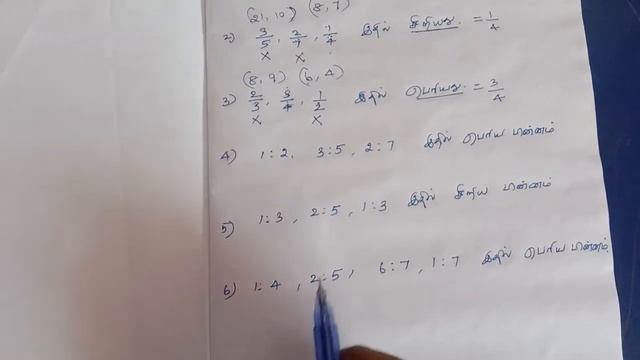 (21, 10) (8, 7)
2) 3/5, 2/7, 1/4 இதில் சிறியது. = 1/4
x x
(8, 9) (6, 4)
3) 2/3, 3/4, 1/2 இதில் பெரியது. = 3/4
x x
4) 1:2, 3:5, 2:7 இதில் பெரிய பின்னம்
5) 1:3, 2:5, 1:3 இதில் சிறிய பின்னம்
6) 1:4, 2:5, 6:7, 1:7 இதில் பெரிய பின்னம்